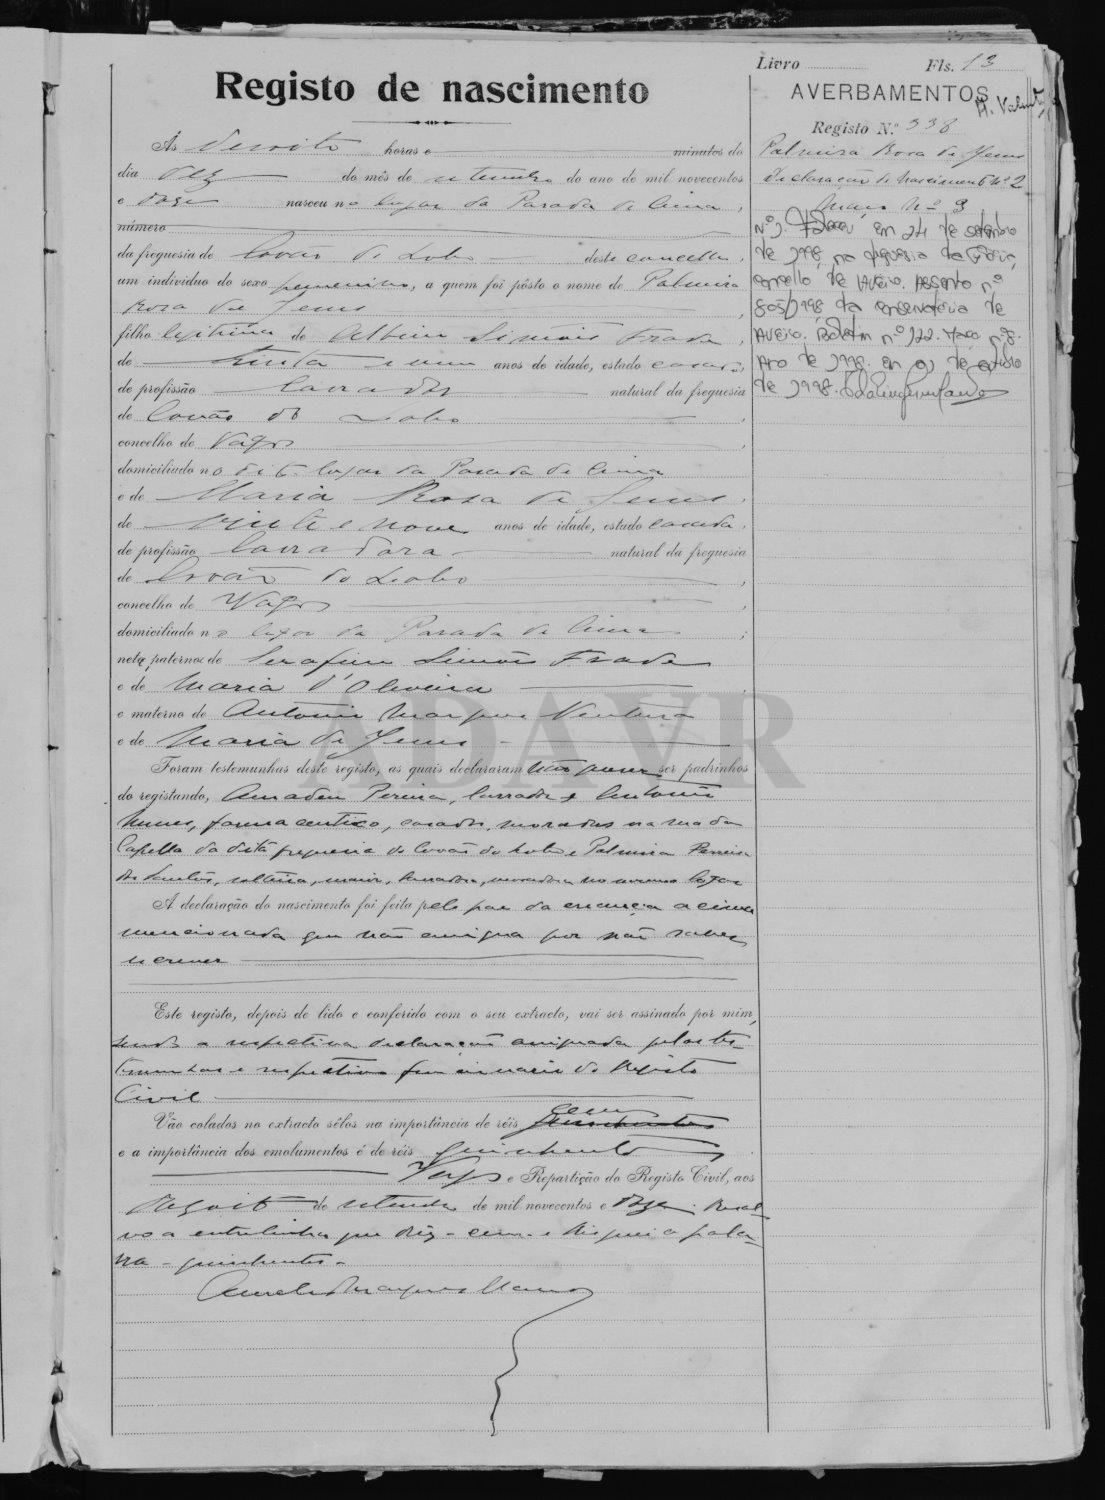 Livro Fls. 13
Registo de nascimento
AVERBAMENTOS
Registo N.º 338
Ás dezoito horas e minutos do
dia dez do mês de setembro do ano de mil novecentos
e doze nasceu no lugar da Parada de Cima,
número
da freguesia de Covão do Lobo deste concelho,
um indivíduo do sexo femenino, a quem foi pôsto o nome de Palmira
Rosa de Jesus
filho legitima de Albino Simões Frade,
de trinta e um anos de idade, estado casado,
de profissão lavrador natural da freguesia
de Covão do Lobo,
concelho de Vagos
domiciliado no dito lugar da Parada de Cima
e de Maria Rosa de Jesus,
de vinte e nove anos de idade, estado casada,
de profissão lavradora natural da freguesia
de Covão do Lobo,
concelho de Vagos,
domiciliado no lugar da Parada de Cima;
neta paterna de Serafim Simões Frade
e de Maria d'Oliveira,
e materno de Antonio Marques Ventura
e de Maria de Jesus
Foram testemunhas deste registo, as quais declararam não querer ser padrinhos
do registando, Amadeu Pereira, lavrador e Antonio
Nunes, farmaceutico, casados, moradores na rua da
Capella da dita freguesia do Covão do Lobo e Palmira Ferreira
dos Santos, solteira, maior, lavradora, moradora no mesmo logar
A declaração do nascimento foi feita pelo pae da creança acima
mencionada que não assigna por não saber
escrever
Este registo, depois de lido e conferido com o seu extracto, vai ser assinado por mim,
sendo a respectiva declaração assignada pelas tes-
temunhas e respectivo funcionario do Registo
Civil
Vão colados no extracto sêlos na importância de réis cem quinhentos
e a importância dos emolumentos é de réis quinhentos
Vagos e Repartição do Registo Civil, aos
dezoito de setembro de mil novecentos e doze. Resal-
vo a entrelinha que diz - cem - e risquei a pala-
vra - quinhentos -
Palmira Rosa de Jesus
Declaração de Nascimento Nº 2
Maço Nº 3
Nº 1. Faleceu em 24 de setembro
de 1998, na freguesia da Glória,
concelho de Aveiro. Assento nº
805/1998 da Conservatória de
Aveiro. Boletim nº 122. Maço nº 8.
Ano de 1998. em 01 de outubro
de 1998.
ADAVR